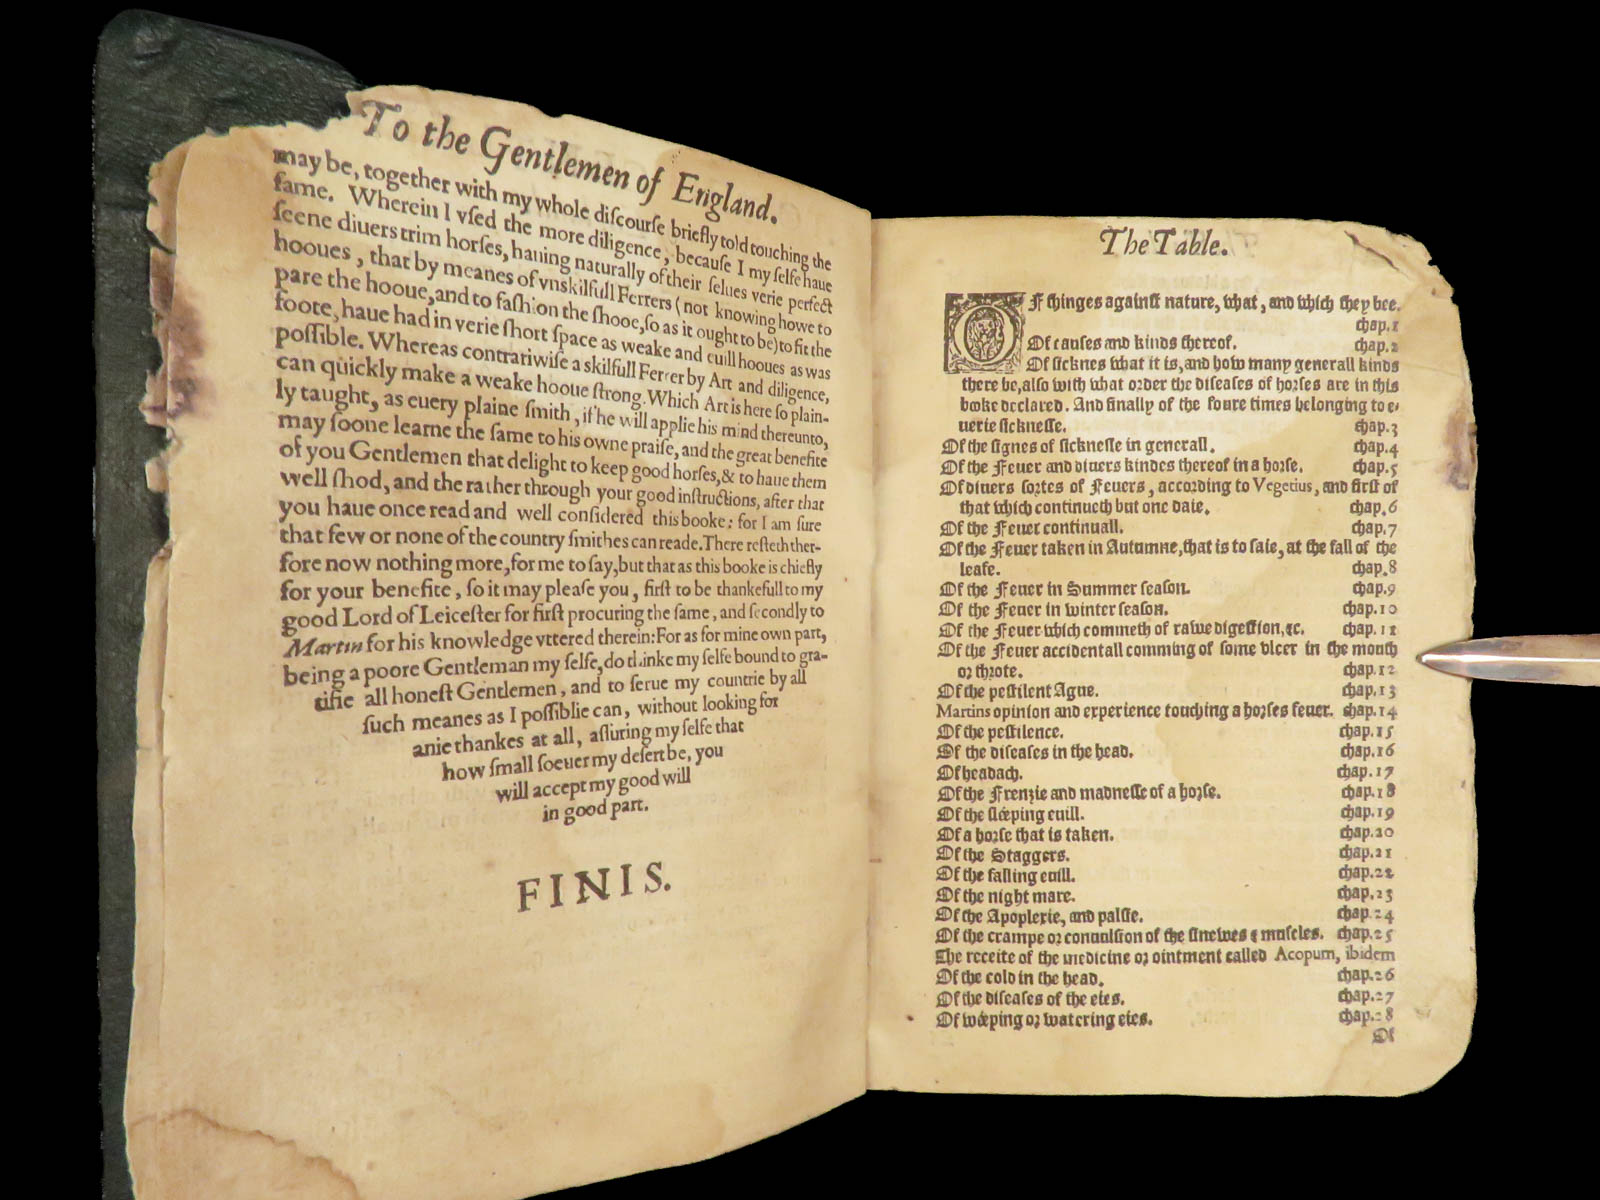 To the Gentlemen of England.
may be, together with my whole diſcourſe briefly told touching the
ſame. Wherein I vſed the more diligence, becauſe I my ſelfe haue
ſeene diuers trim horſes, hauing naturally of their ſelues verie perfect
hooues, that by meanes of vnskilfull Ferrers (not knowing howe to
pare the hooue, and to faſhion the ſhooe, ſo as it ought to be) to fit the
foote, haue had in verie ſhort ſpace as weake and euill hooues as was
poſſible. Whereas contrariwiſe a skilfull Ferrer by Art and diligence,
can quickly make a weake hooue ſtrong. Which Art is here ſo plain-
ly taught, as euery plaine ſmith, if he will applie his mind thereunto,
may ſoone learne the ſame to his owne praiſe, and the great benefite
of you Gentlemen that delight to keep good horſes, & to haue them
well ſhod, and the rather through your good inſtructions, after that
you haue once read and well conſidered this booke: for I am ſure
that few or none of the country ſmithes can reade. There reſteth ther-
fore now nothing more, for me to ſay, but that as this booke is chiefly
for your benefite, ſo it may pleaſe you, firſt to be thankefull to my
good Lord of Leiceſter for firſt procuring the ſame, and ſecondly to
Martin for his knowledge vttered therein: For as for mine own part,
being a poore Gentleman my ſelfe, do thinke my ſelfe bound to gra-
tifie all honeſt Gentlemen, and to ſerue my countrie by all
ſuch meanes as I poſſiblie can, without looking for
anie thankes at all, aſſuring my ſelfe that
how ſmall ſoeuer my deſert be, you
will accept my good will
in good part.
FINIS.
The Table.
OF thinges againſt nature, what, and which they bee.
chap.1
Of cauſes and kinds thereof. chap.2
Of ſicknes what it is, and how many generall kinds
there be, alſo with what order the diſeaſes of horſes are in this
booke declared. And finally of the foure times belonging to e-
uerie ſickneſſe. chap.3
Of the ſignes of ſickneſſe in generall. chap.4
Of the Feuer and diuers kindes thereof in a horſe. chap.5
Of diuers ſortes of Feuers, according to Vegetius, and firſt of
that which continueth but one daie. chap.6
Of the Feuer continuall. chap.7
Of the Feuer taken in Autumne, that is to ſaie, at the fall of the
leafe. chap.8
Of the Feuer in Summer ſeaſon. chap.9
Of the Feuer in winter ſeaſon. chap.10
Of the Feuer which commeth of rawe digeſtion, &c. chap.11
Of the Feuer accidentall comming of ſome vlcer in the mouth
or throte. chap.12
Of the peſtilent Ague. chap.13
Martins opinion and experience touching a horſes feuer. chap.14
Of the peſtilence. chap.15
Of the diſeaſes in the head. chap.16
Of headach. chap.17
Of the Frenzie and madneſſe of a horſe. chap.18
Of the ſléeping euill. chap.19
Of a horſe that is taken. chap.20
Of the Staggers. chap.21
Of the falling euill. chap.22
Of the night mare. chap.23
Of the Apoplexie, and palſie. chap.24
Of the crampe or conuulſion of the ſinewes & muſcles. chap.25
The receite of the medicine or ointment called Acopum, ibidem
Of the cold in the head. chap.26
Of the diſeaſes of the eies. chap.27
Of wéeping or watering eies. chap.28
Of